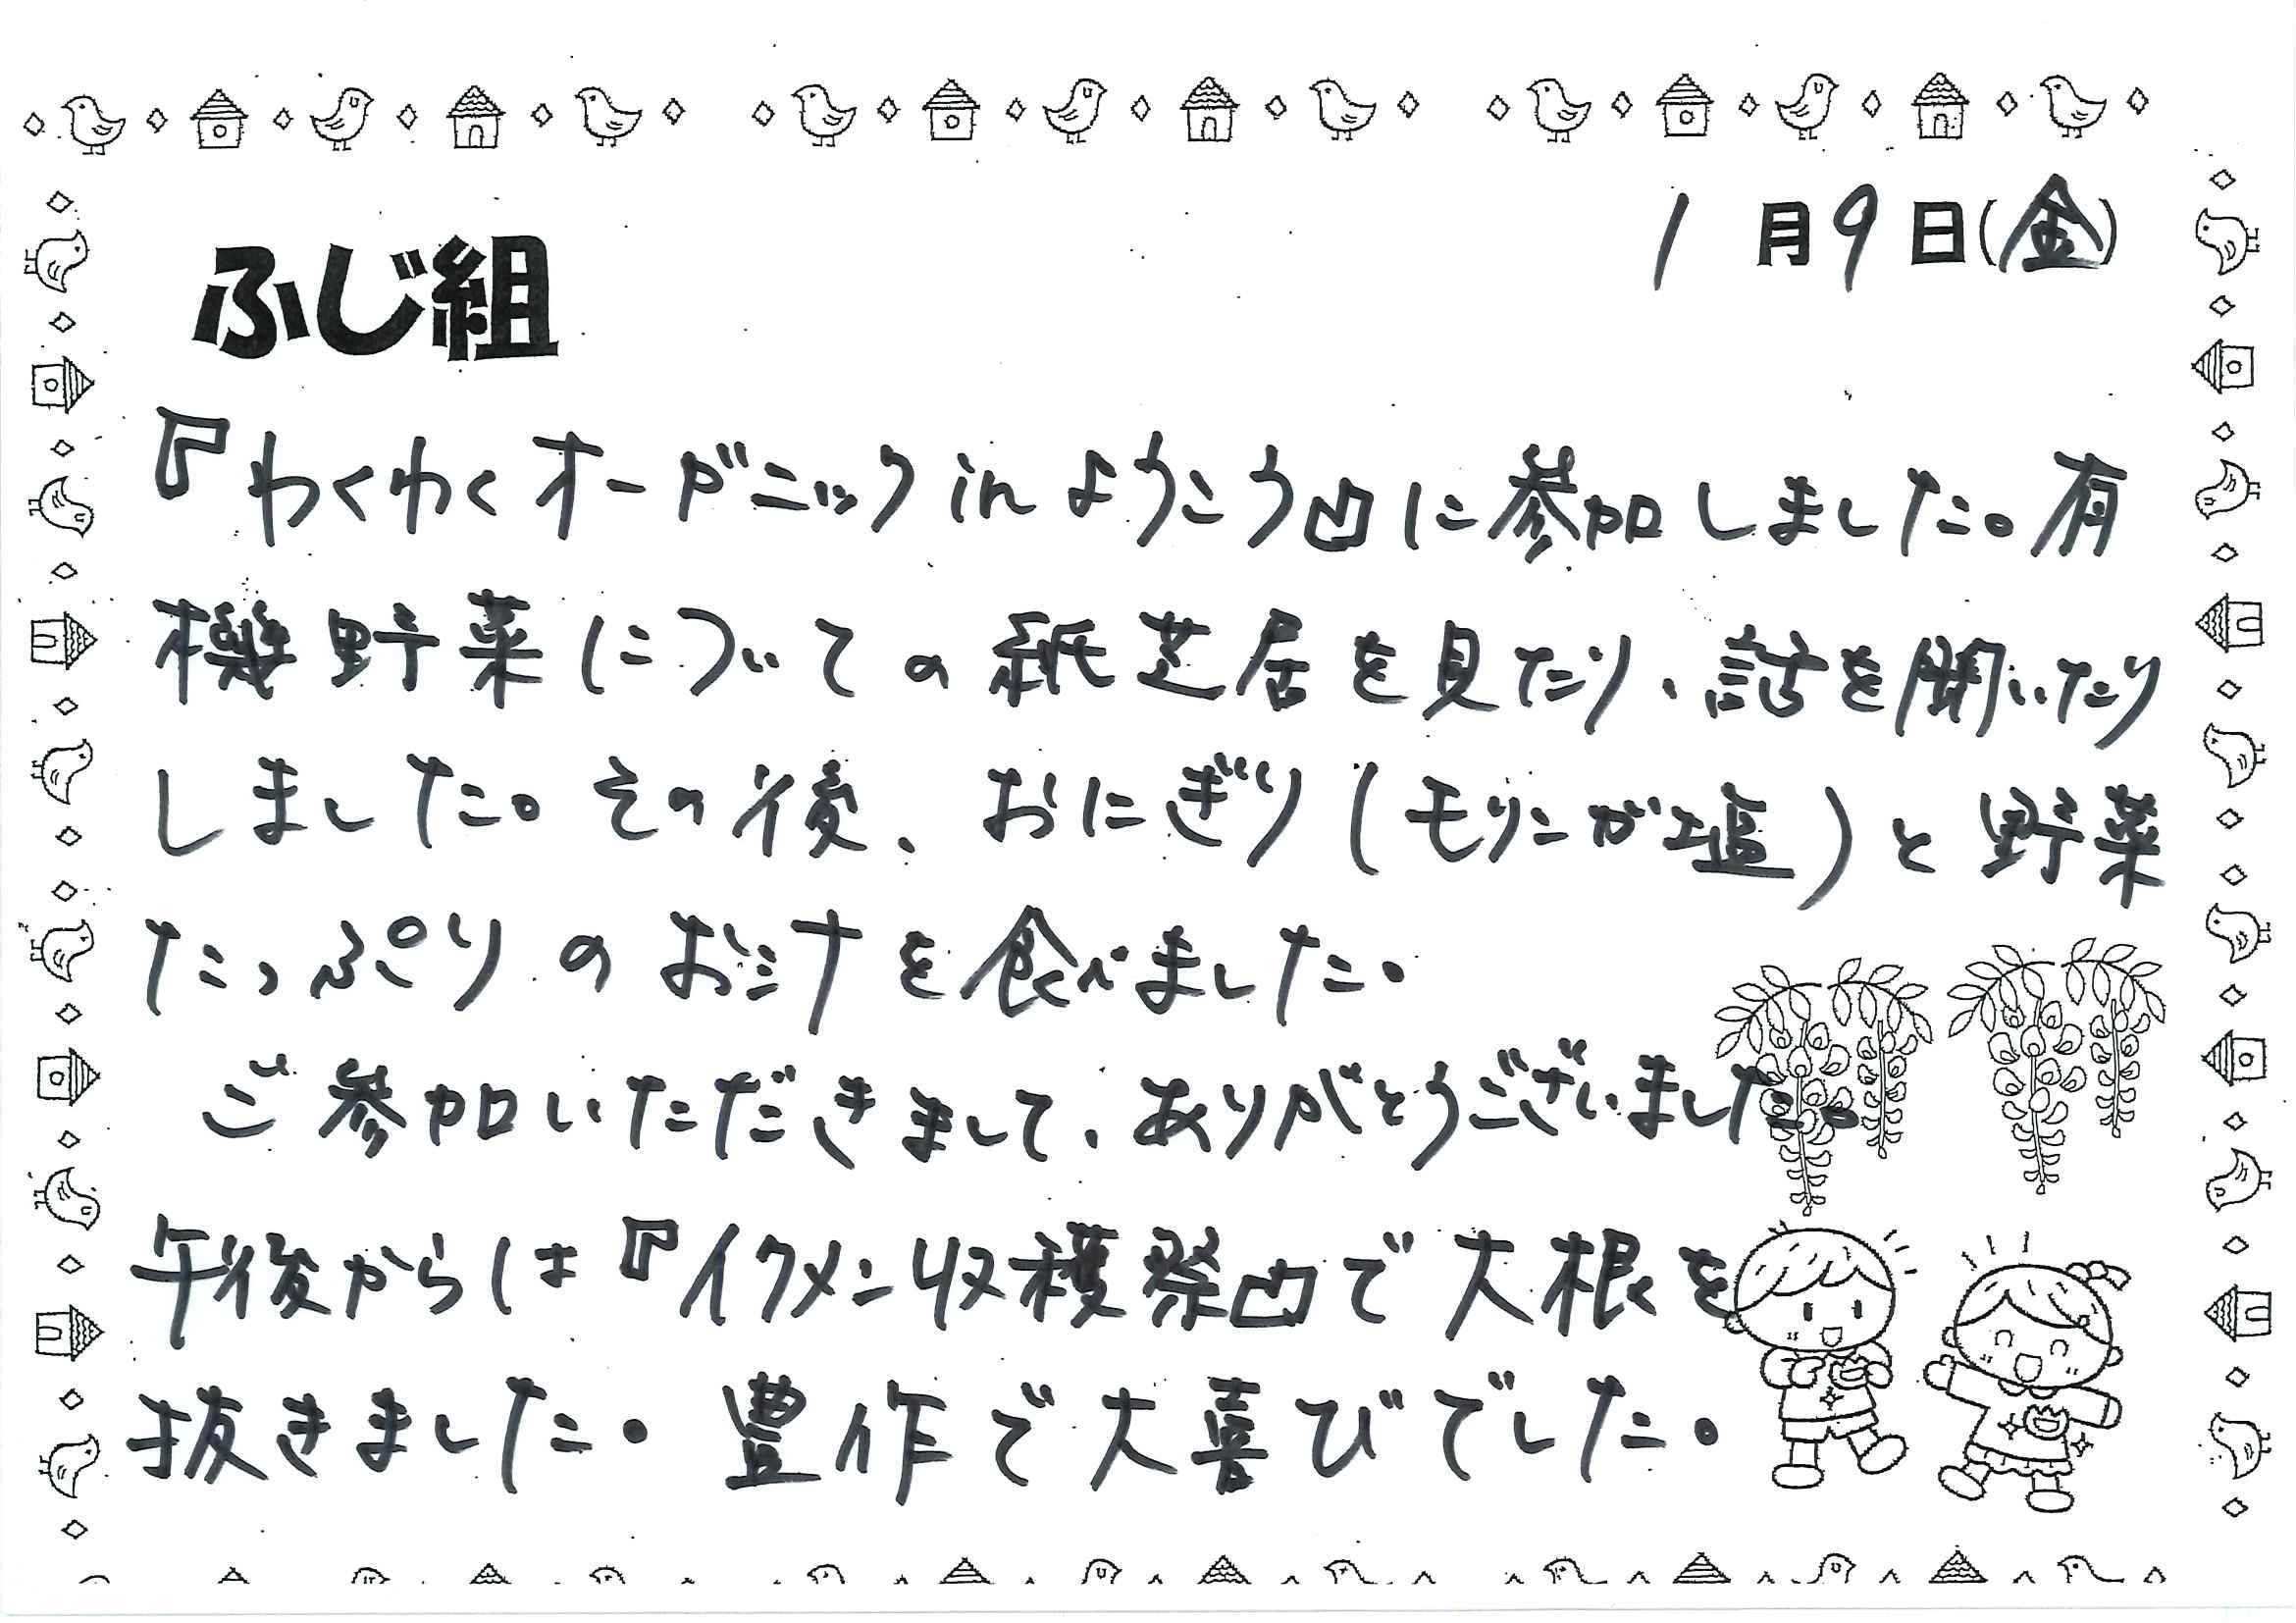 1月9日(金)
ふじ組
『わくわくオーガニックinようこう凸に参加しました。有
機野菜についての紙芝居を見たり、話を聞いたり
しました。その後、おにぎり(モリンガ塩)と野菜
たっぷりのお汁を食べました。
ご参加いただきまして、ありがとうございました。
午後からは『イクメン収穫祭凸で大根を
抜きました。豊作で大喜びでした。